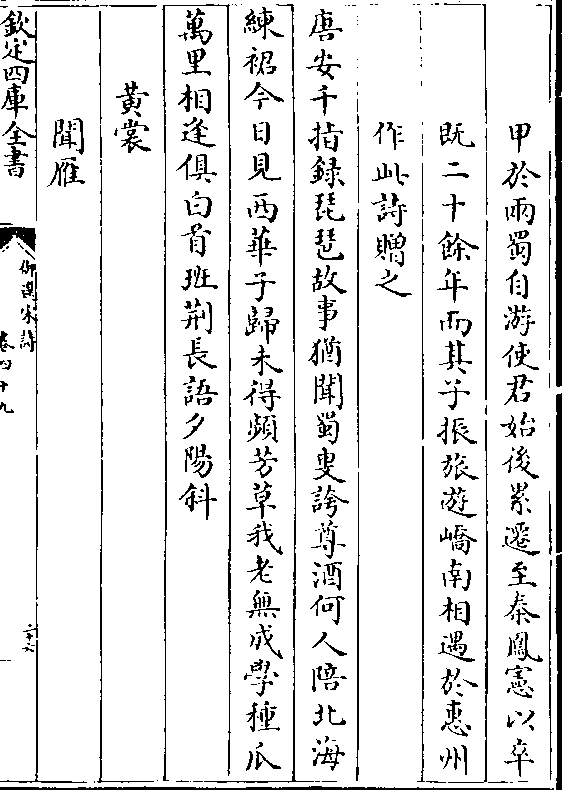 甲於兩蜀自游使君始後累遷至秦鳳憲以卒
既二十餘年而其子振旅遊嶠南相遇於惠州
作此詩贈之
唐安千指錄琵琶故事猶聞蜀叟誇尊酒何人陪北海
練裙今日見西華子歸未得頻芳草我老無成學種瓜
萬里相逢俱白首班荆長語夕陽斜
黃裳
聞雁
欽定四庫全書
御選宋詩
卷四十九
三十六